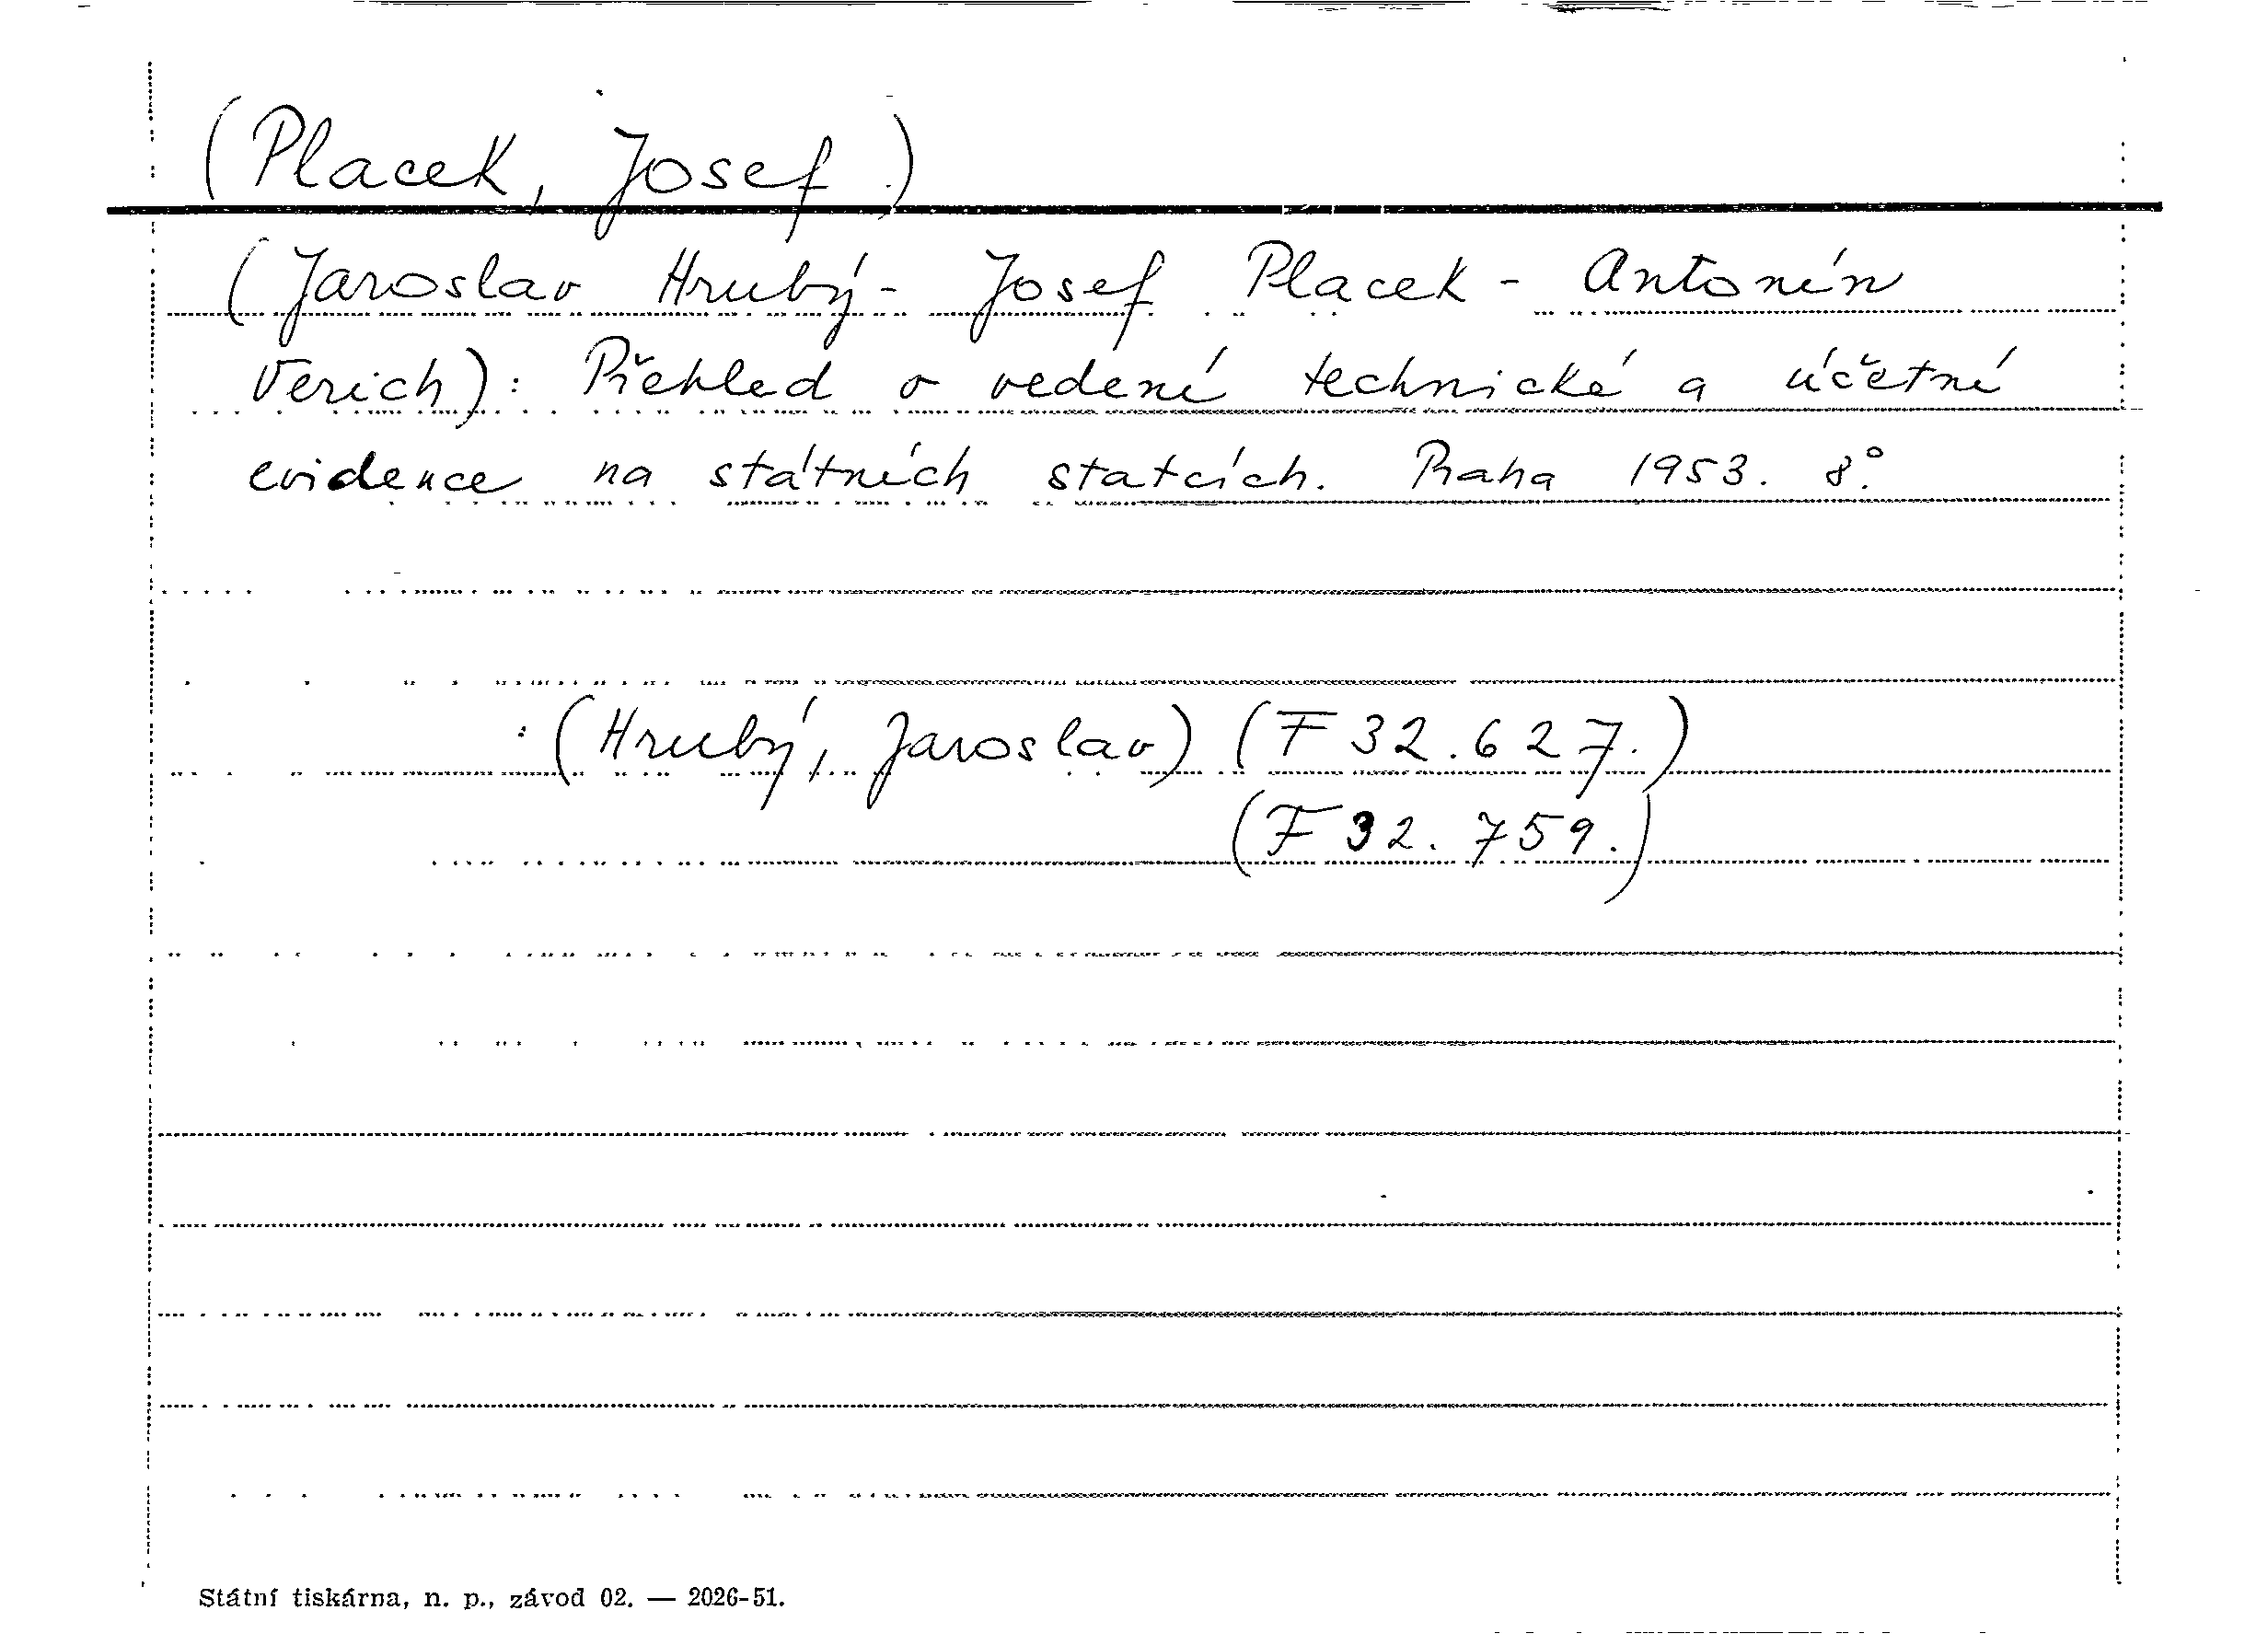 (Placek, Josef)
(Jaroslav Hrubý - Josef Placek - Antonín
Verich): Přehled o vedení technické a účetní
evidence na státních statcích. Praha 1953. 8°.
: (Hrubý, Jaroslav) (F 32.627.)
(F 32.759.)
Státní tiskárna, n. p., závod 02. — 2026-51.